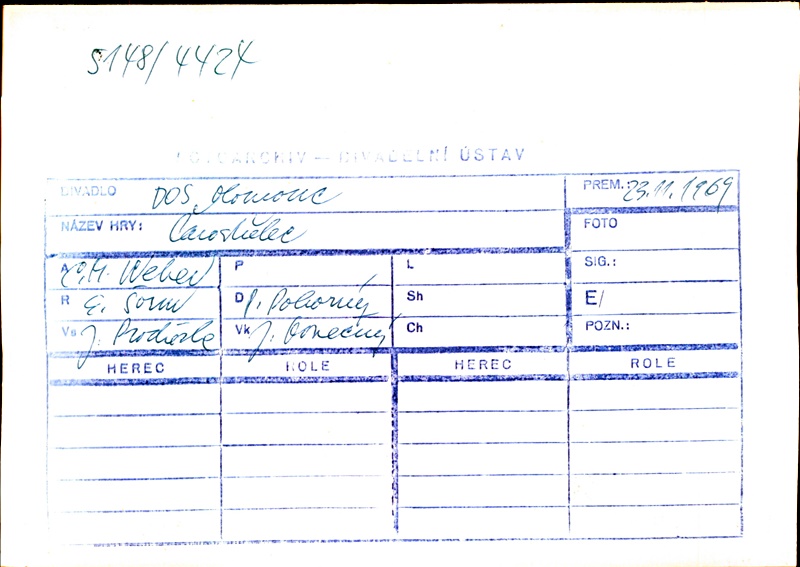 5148/4424
FOTOARCHIV — DIVADELNÍ ÚSTAV
DIVADLO DOS Olomouc PREM.: 23.11.1969
NÁZEV HRY: Čarostřelec FOTO
A C.M. Weber P L SIG.:
R E. Šorm D P. Pokorný Sh E/
Vs J. Procházka Vk J. Konečný Ch POZN.:
HEREC ROLE HEREC ROLE